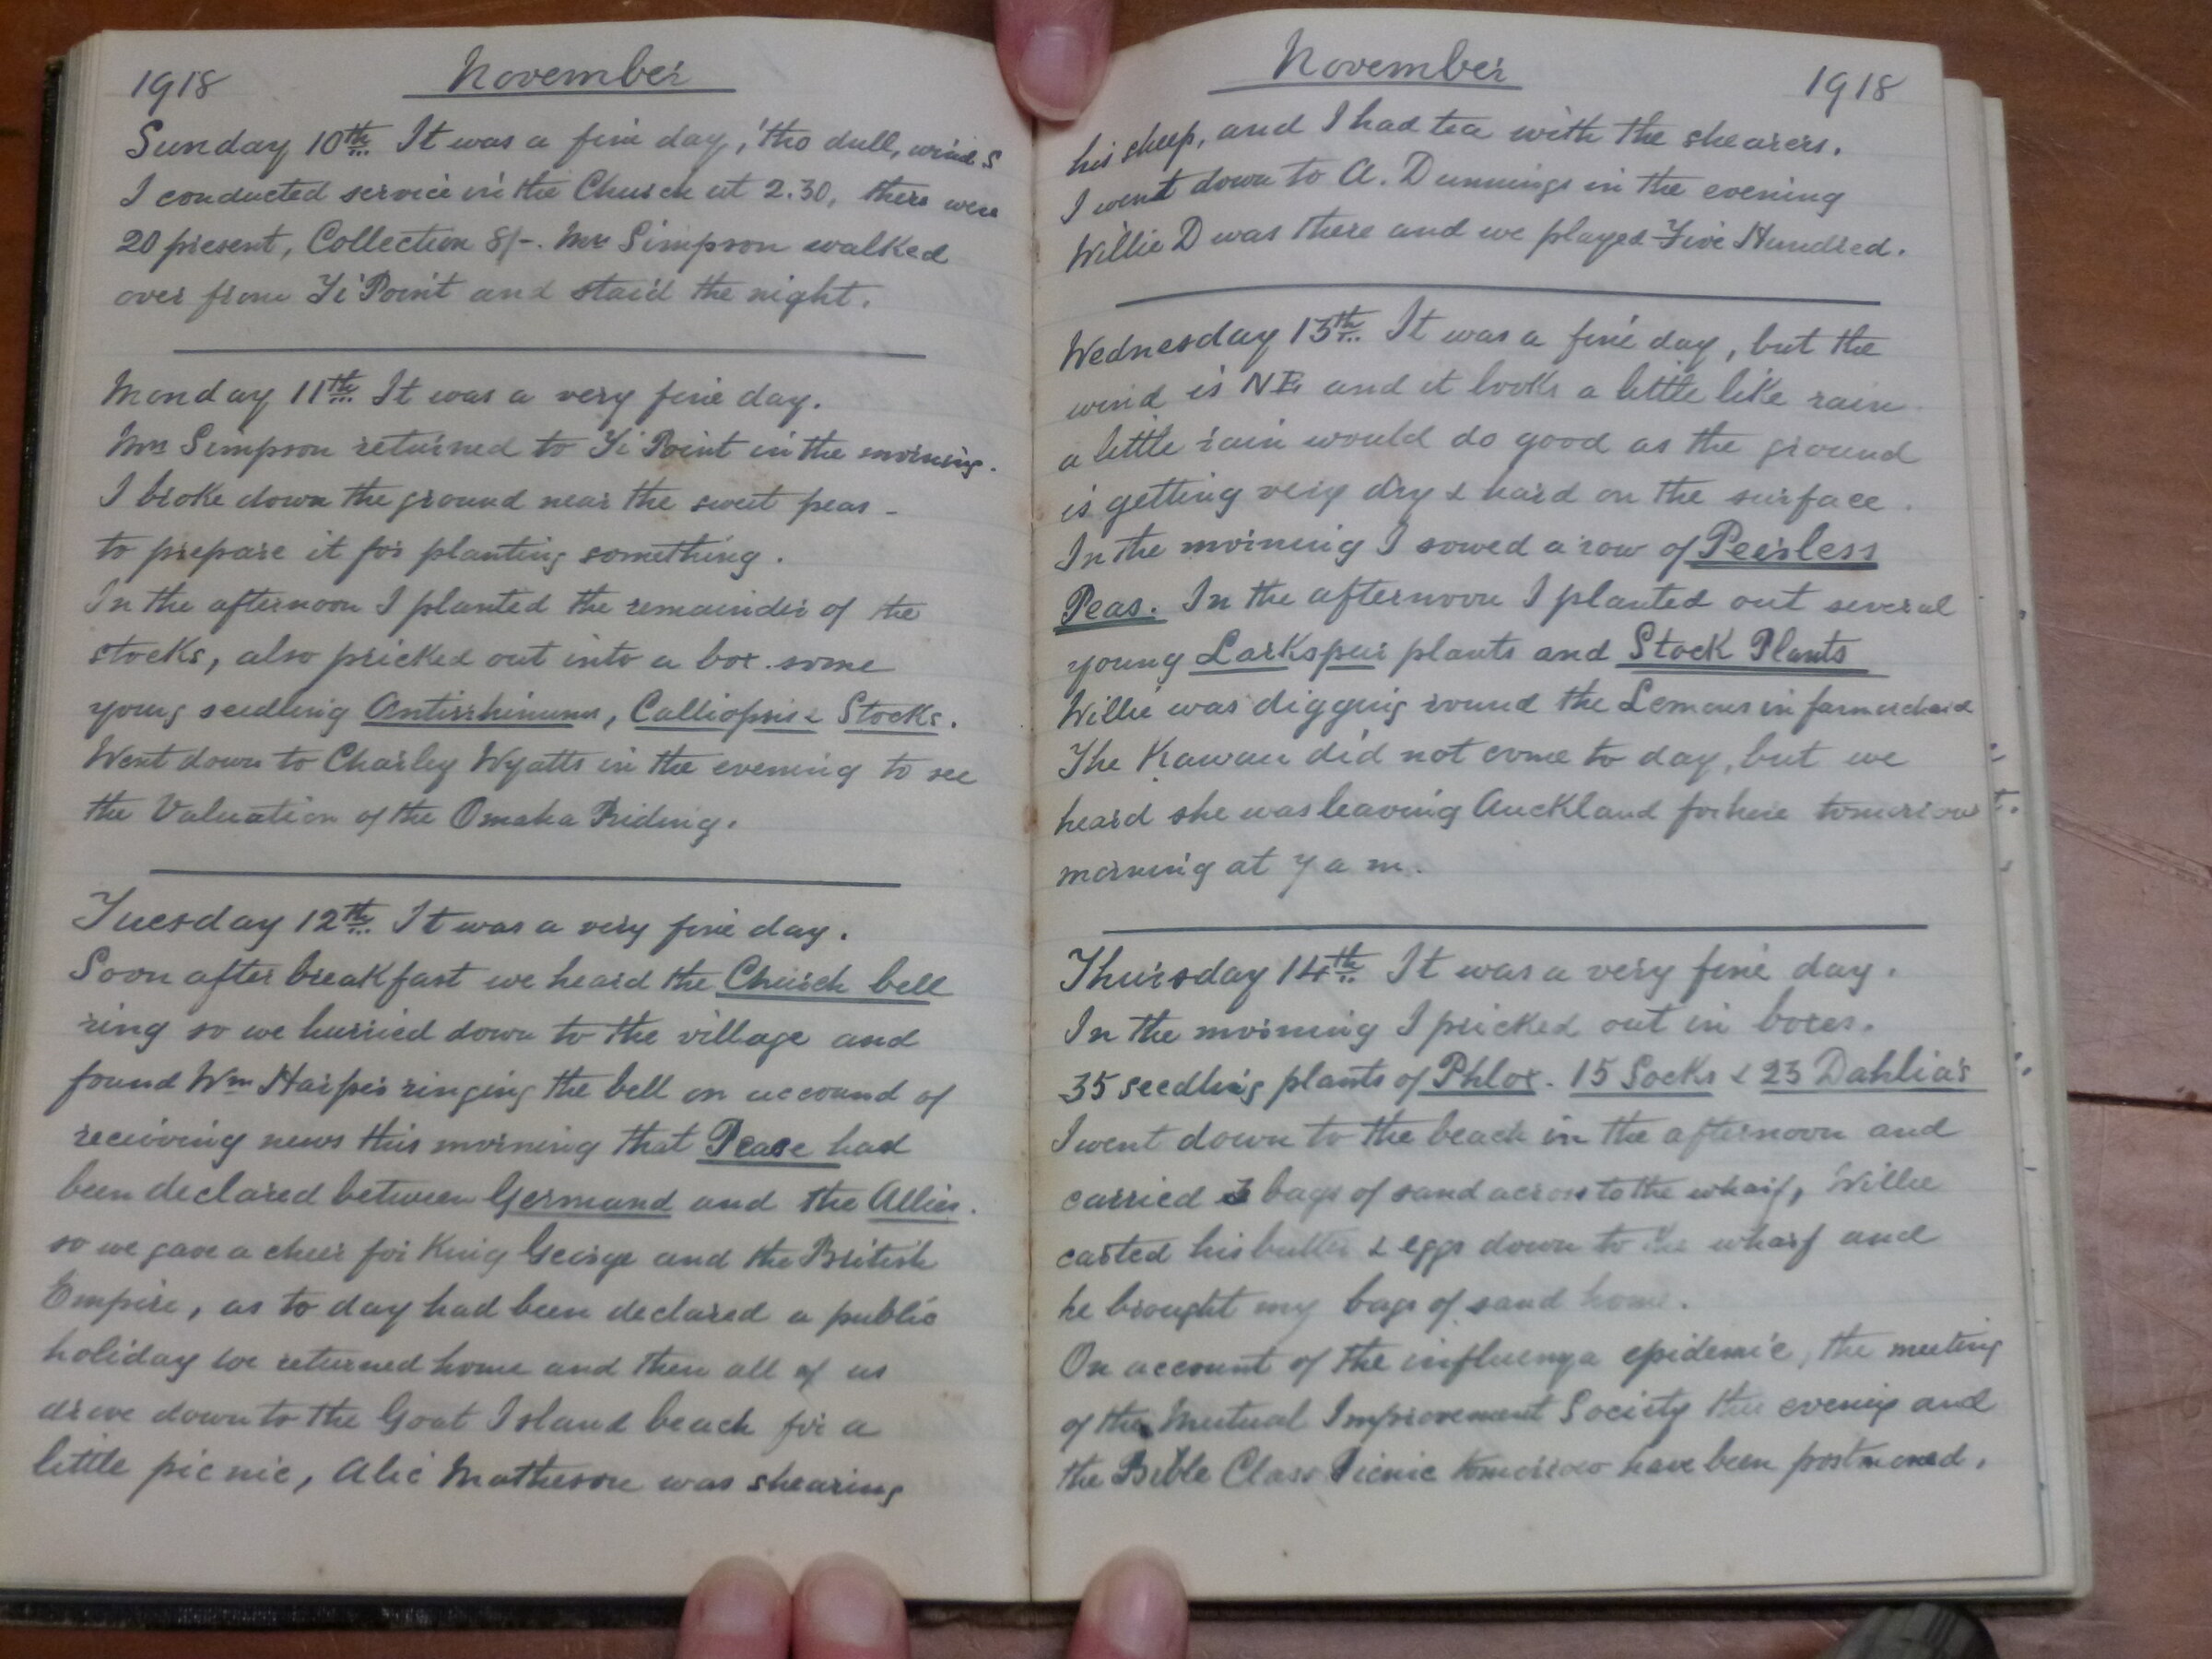 1918 November
Sunday 10th It was a fine day, 'tho dull, wind S
I conducted service in the Church at 2.30, there were
20 present, Collection 8/-. Mr Simpson walked
over from Ti Point and staid the night.
Monday 11th It was a very fine day.
Mr Simpson returned to Ti Point in the morning.
I broke down the ground near the sweet peas -
to prepare it for planting something.
In the afternoon I planted the remainder of the
stocks, also pricked out into a box some
young seedling Antirrhinums, Calliopsis & Stocks.
Went down to Charley Wyatts in the evening to see
the Valuation of the Omaha Riding.
Tuesday 12th It was a very fine day.
Soon after breakfast we heard the Church bell
ring so we hurried down to the village and
found Wm Harper ringing the bell on accound of
receiving news this morning that Peace had
been declared between Germand and the Allies.
so we gave a cheer for King George and the British
Empire, as to day had been declared a public
holiday we returned home and then all of us
drove down to the Goat Island beach for a
little picnic, Alic Matheson was shearing
November 1918
his sheep, and I had tea with the shearers.
I went down to A. Dunnings in the evening
Willie D was there and we played Five Hundred.
Wednesday 13th It was a fine day, but the
wind is NE and it looks a little like rain
a little rain would do good as the ground
is getting very dry & hard on the surface.
In the morning I sowed a row of Peerless
Peas. In the afternoon I planted out several
young Larkspur plants and Stock Plants
Willie was digging round the Lemons in farm orchard
The Kawau did not come to day, but we
heard she was leaving Auckland for here tomorrow
morning at 7 a m.
Thursday 14th It was a very fine day.
In the morning I pricked out in boxes.
35 seedling plants of Phlox. 15 Socks & 23 Dahlia's
I went down to the beach in the afternoon and
carried 3 bags of sand across to the wharf, Willie
carted his butter & eggs down to the wharf and
he brought my bags of sand home.
On account of the influenza epidemic, the meeting
of the Mutual Improvement Society this evening and
the Bible Class Picnic tomorrow have been postponed.